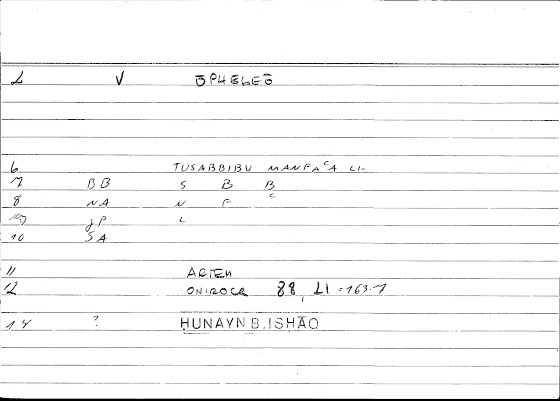 2 V ŌPHELEŌ
6 TUSABBIBU MANFAᶜA LI-
7 BB S B B
8 NA N F ᶜ
9 JP L
10 SA
11 ARTEM
12 ONIROCR 88, 21 = 163.7
14 ? HUNAYN B.ISHĀQ